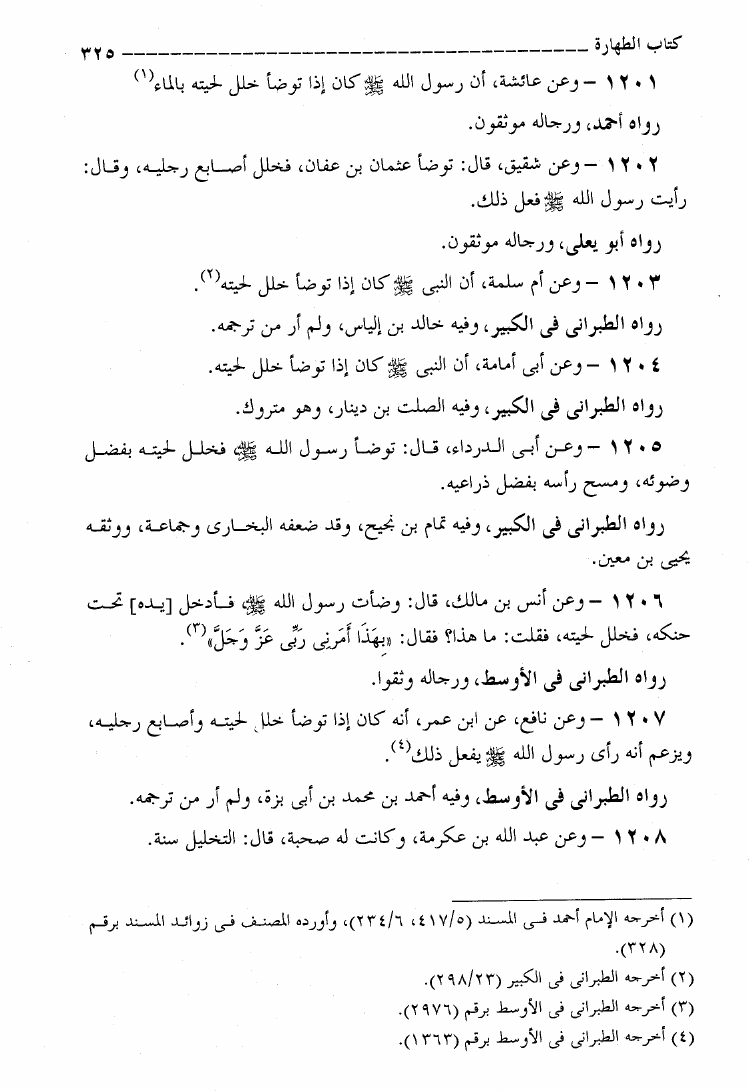 كتاب الطهارة ـــــــــــــــــــــــــــــــــــــــــ ٣٢٥
١٢٠١ – وعن عائشة، أن رسول الله ﷺ كان إذا توضأ خلل لحيته بالماء(١)
رواه أحمد، ورجاله موثقون.
١٢٠٢ – وعن شقيق، قال: توضأ عثمان بن عفان، فخلل أصابع رجليه، وقال:
رأيت رسول الله ﷺ فعل ذلك.
رواه أبو يعلى، ورجاله موثقون.
١٢٠٣ – وعن أم سلمة، أن النبى ﷺ كان إذا توضأ خلل لحيته(٢).
رواه الطبرانى فى الكبير، وفيه خالد بن إلياس، ولم أر من ترجمه.
١٢٠٤ – وعن أبى أمامة، أن النبى ﷺ كان إذا توضأ خلل لحيته.
رواه الطبرانى فى الكبير، وفيه الصلت بن دينار، وهو متروك.
١٢٠٥ – وعن أبى الدرداء، قال: توضأ رسول الله ﷺ فخلل لحيته بفضل
وضوئه، ومسح رأسه بفضل ذراعيه.
رواه الطبرانى فى الكبير، وفيه تمام بن نجيح، وقد ضعفه البخارى وجماعة، ووثقه
يحيى بن معين.
١٢٠٦ – وعن أنس بن مالك، قال: وضأت رسول الله ﷺ فأدخل [يده] تحت
حنكه، فخلل لحيته، فقلت: ما هذا؟ فقال: «بِهَذَا أَمَرَنِى رَبِّى عَزَّ وَجَلَّ»(٣).
رواه الطبرانى فى الأوسط، ورجاله وثقوا.
١٢٠٧ – وعن نافع، عن ابن عمر، أنه كان إذا توضأ خلل لحيته وأصابع رجليه،
ويزعم أنه رأى رسول الله ﷺ يفعل ذلك(٤).
رواه الطبرانى فى الأوسط، وفيه أحمد بن محمد بن أبى بزة، ولم أر من ترجمه.
١٢٠٨ – وعن عبد الله بن عكرمة، وكانت له صحبة، قال: التخليل سنة.
(١) أخرجه الإمام أحمد فى المسند (٤١٧/٥، ٢٣٤/٦)، وأورده المصنف فى زوائد المسند برقم
(٣٢٨).
(٢) أخرجه الطبرانى فى الكبير (٢٩٨/٢٣).
(٣) أخرجه الطبرانى فى الأوسط برقم (٢٩٧٦).
(٤) أخرجه الطبرانى فى الأوسط برقم (١٣٦٣).